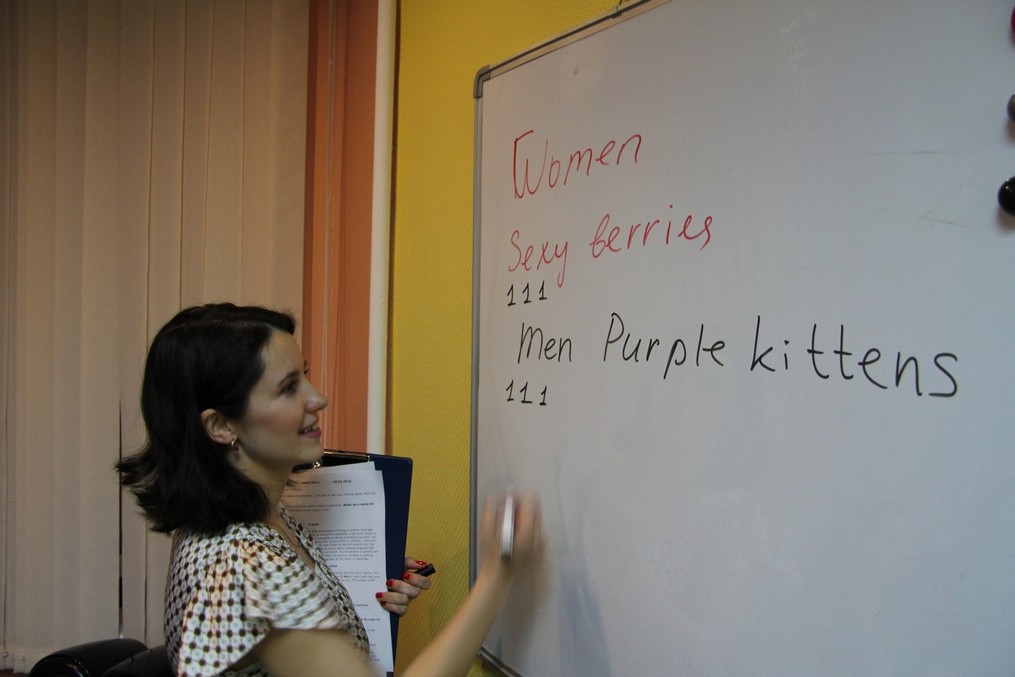 Women
Sexy berries
111
Men Purple kittens
111